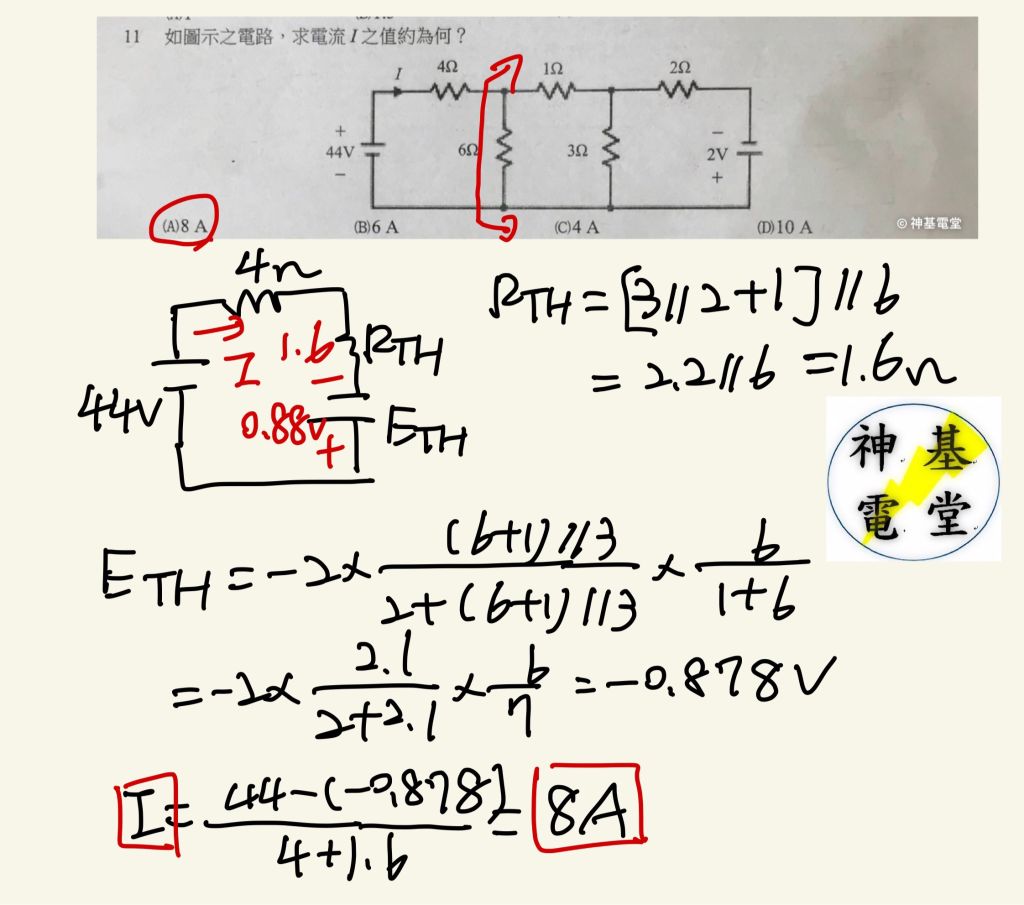 11 如圖示之電路，求電流 I 之值約為何？
I 4Ω 1Ω 2Ω
+ 44V − 6Ω 3Ω − 2V +
(A)8 A (B)6 A (C)4 A (D)10 A
©神基電堂
4Ω
I 1.6 RTH
44V 0.88V − + ETH
RTH = [3//2+1]//6
= 2.2//6 = 1.6Ω
神基
電堂
ETH = -2× (6+1)//3 / 2+(6+1)//3 × 6 / 1+6
= -2× 2.1 / 2+2.1 × 6 / 7 = -0.878V
I = 44-(-0.878) / 4+1.6 = 8A